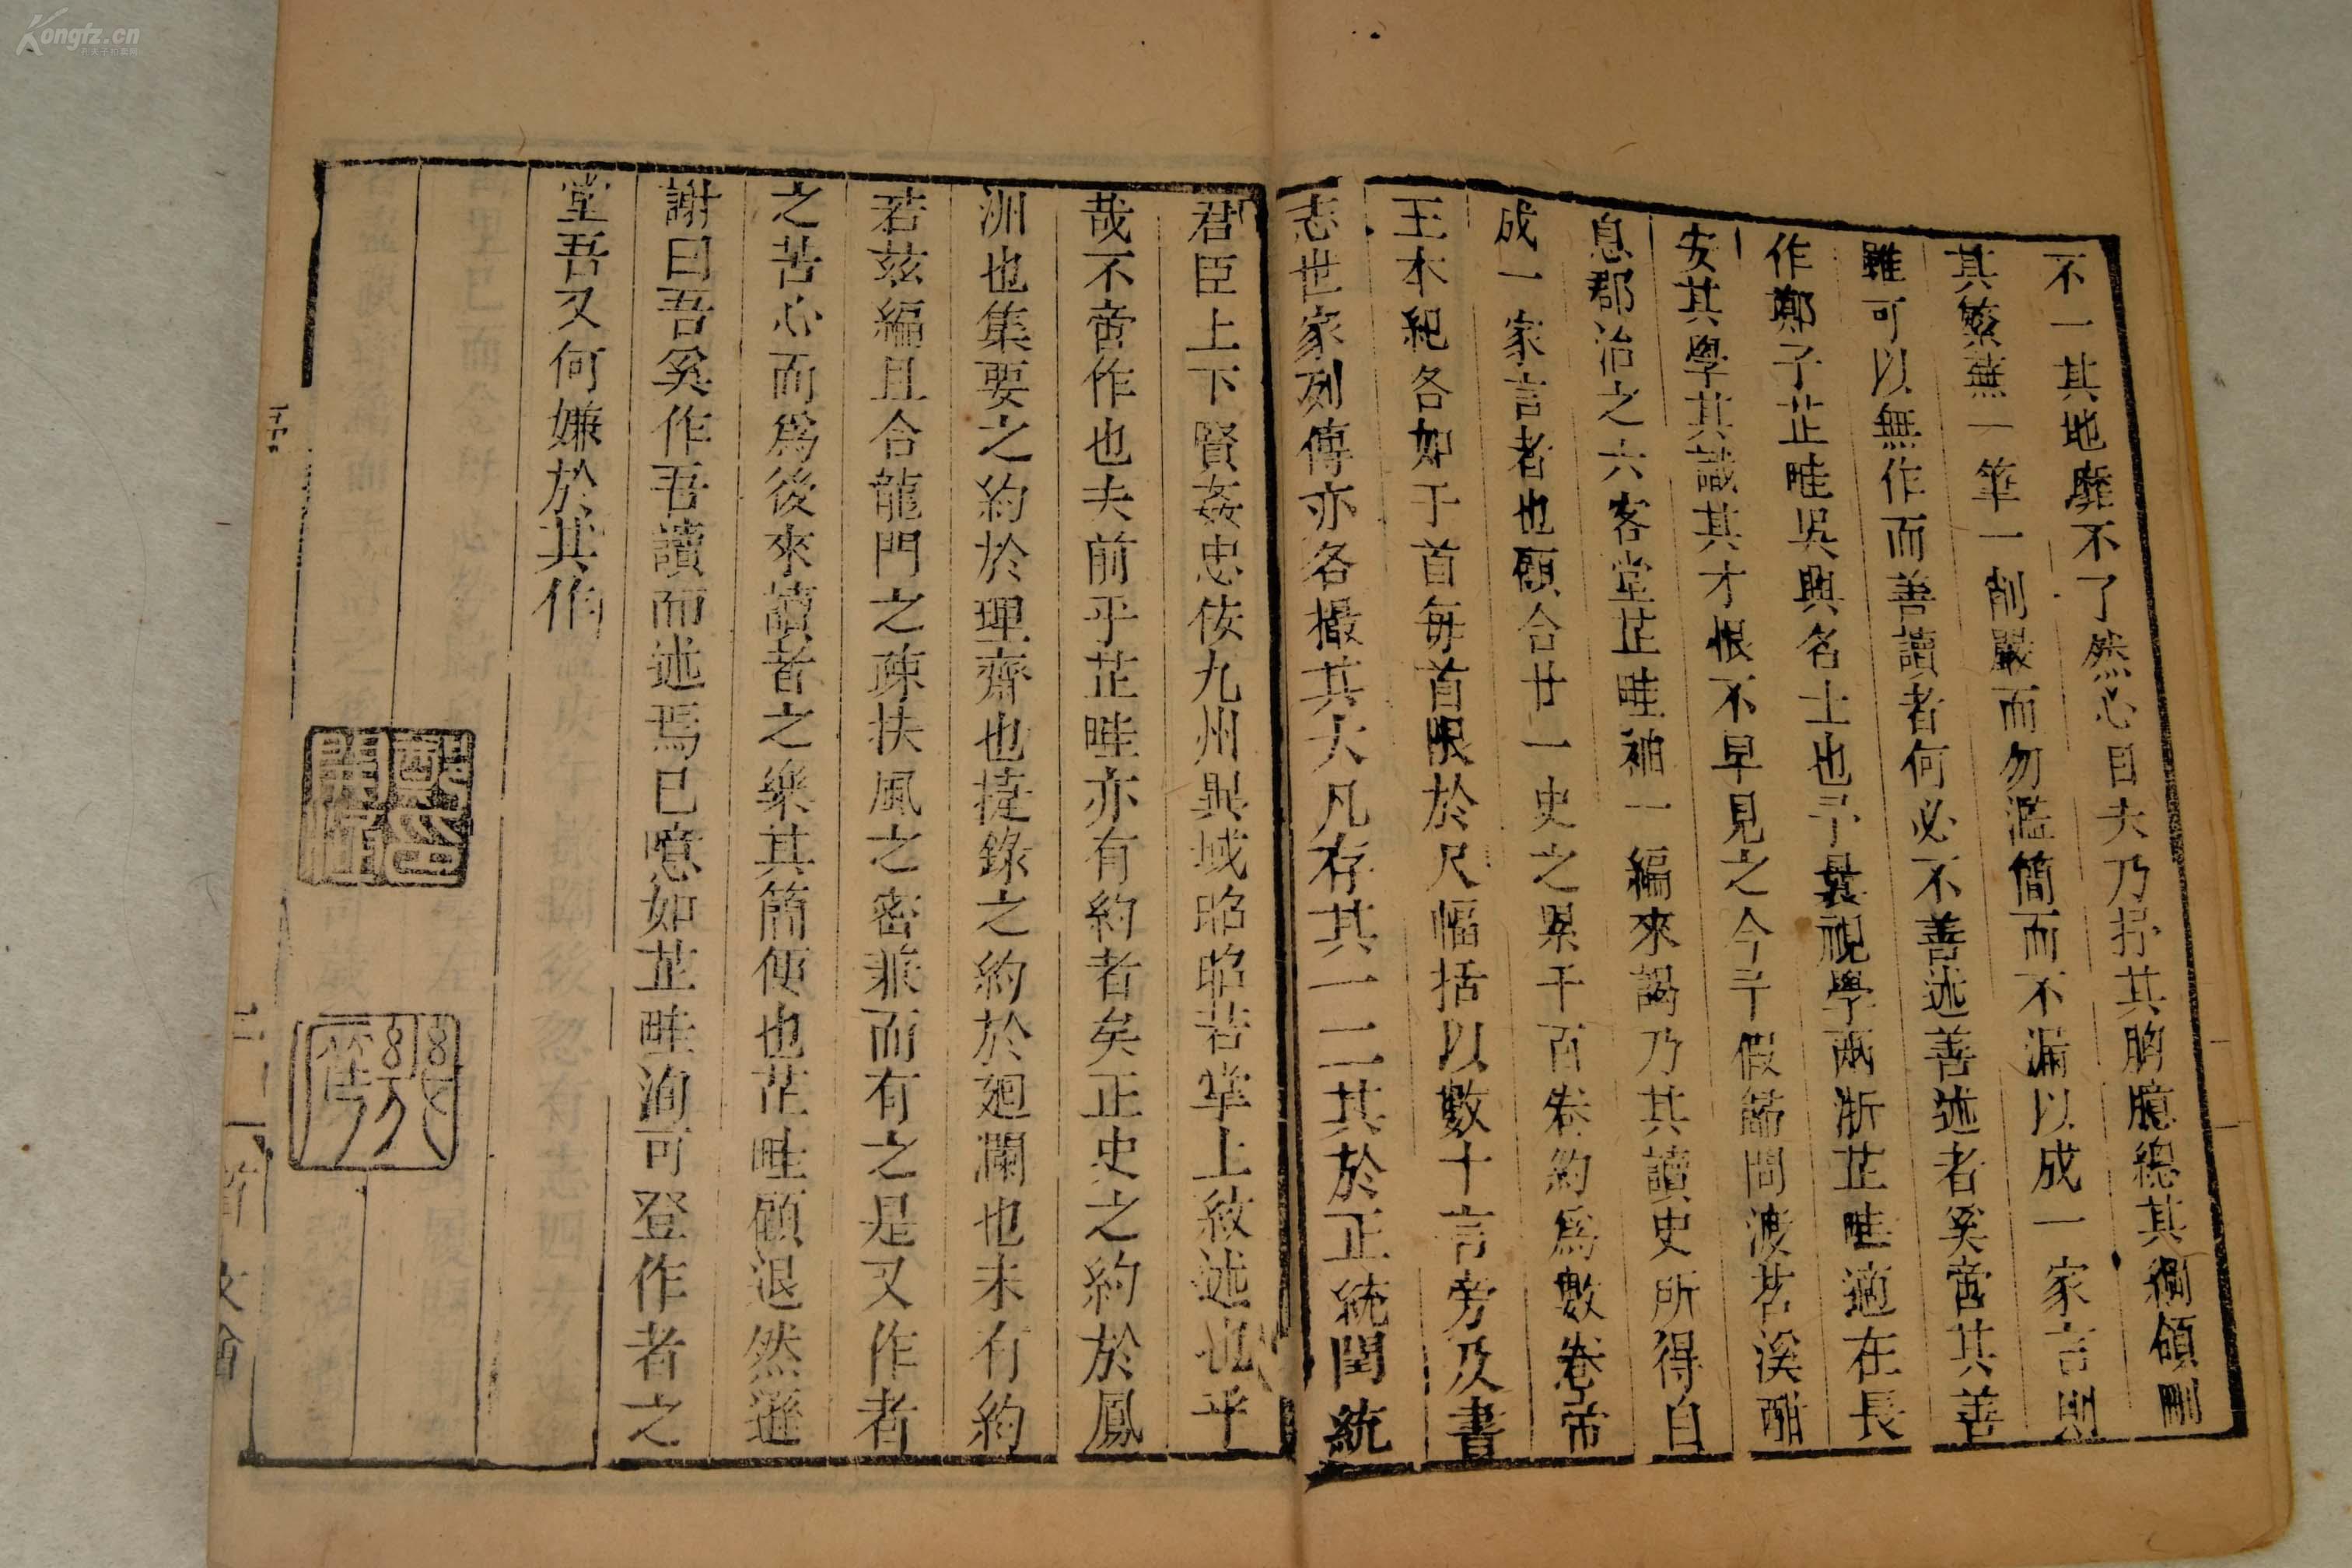 不一其地靡不了然心目夫乃抒其胸臆總其綱領刪
其繁蕪一筆一削嚴而勿濫簡而不漏以成一家言則
雖可以無作而善讀者何必不善述善述者奚啻其善
作鄭子芷畦吳興名士也予曩視學兩浙芷畦適在長
安其學其識其才恨不早見之今予假歸問渡苕溪酣
息郡治之六客堂芷畦袖一編來謁乃其讀史所得自
成一家言者也願合廿一史之累千百卷約爲數卷帝
王本紀各如干首每首限於尺幅括以數十言旁及書
志世家列傳亦各撮其大凡存其一二其於正統閏統
君臣上下賢姦忠佞九州異域昭昭若掌上紋述也乎
哉不啻作也夫前乎芷畦亦有約者矣正史之約於鳳
洲也集要之約於理齋也捷錄之約於廻瀾也未有約
若茲編且合龍門之疎扶風之密兼而有之是又作者
之苦心而爲後來讀者之樂其簡便也芷畦顧退然遜
謝曰吾奚作吾讀而述焉已噫如芷畦洵可登作者之
堂吾又何嫌於其作
Kongfz.cn